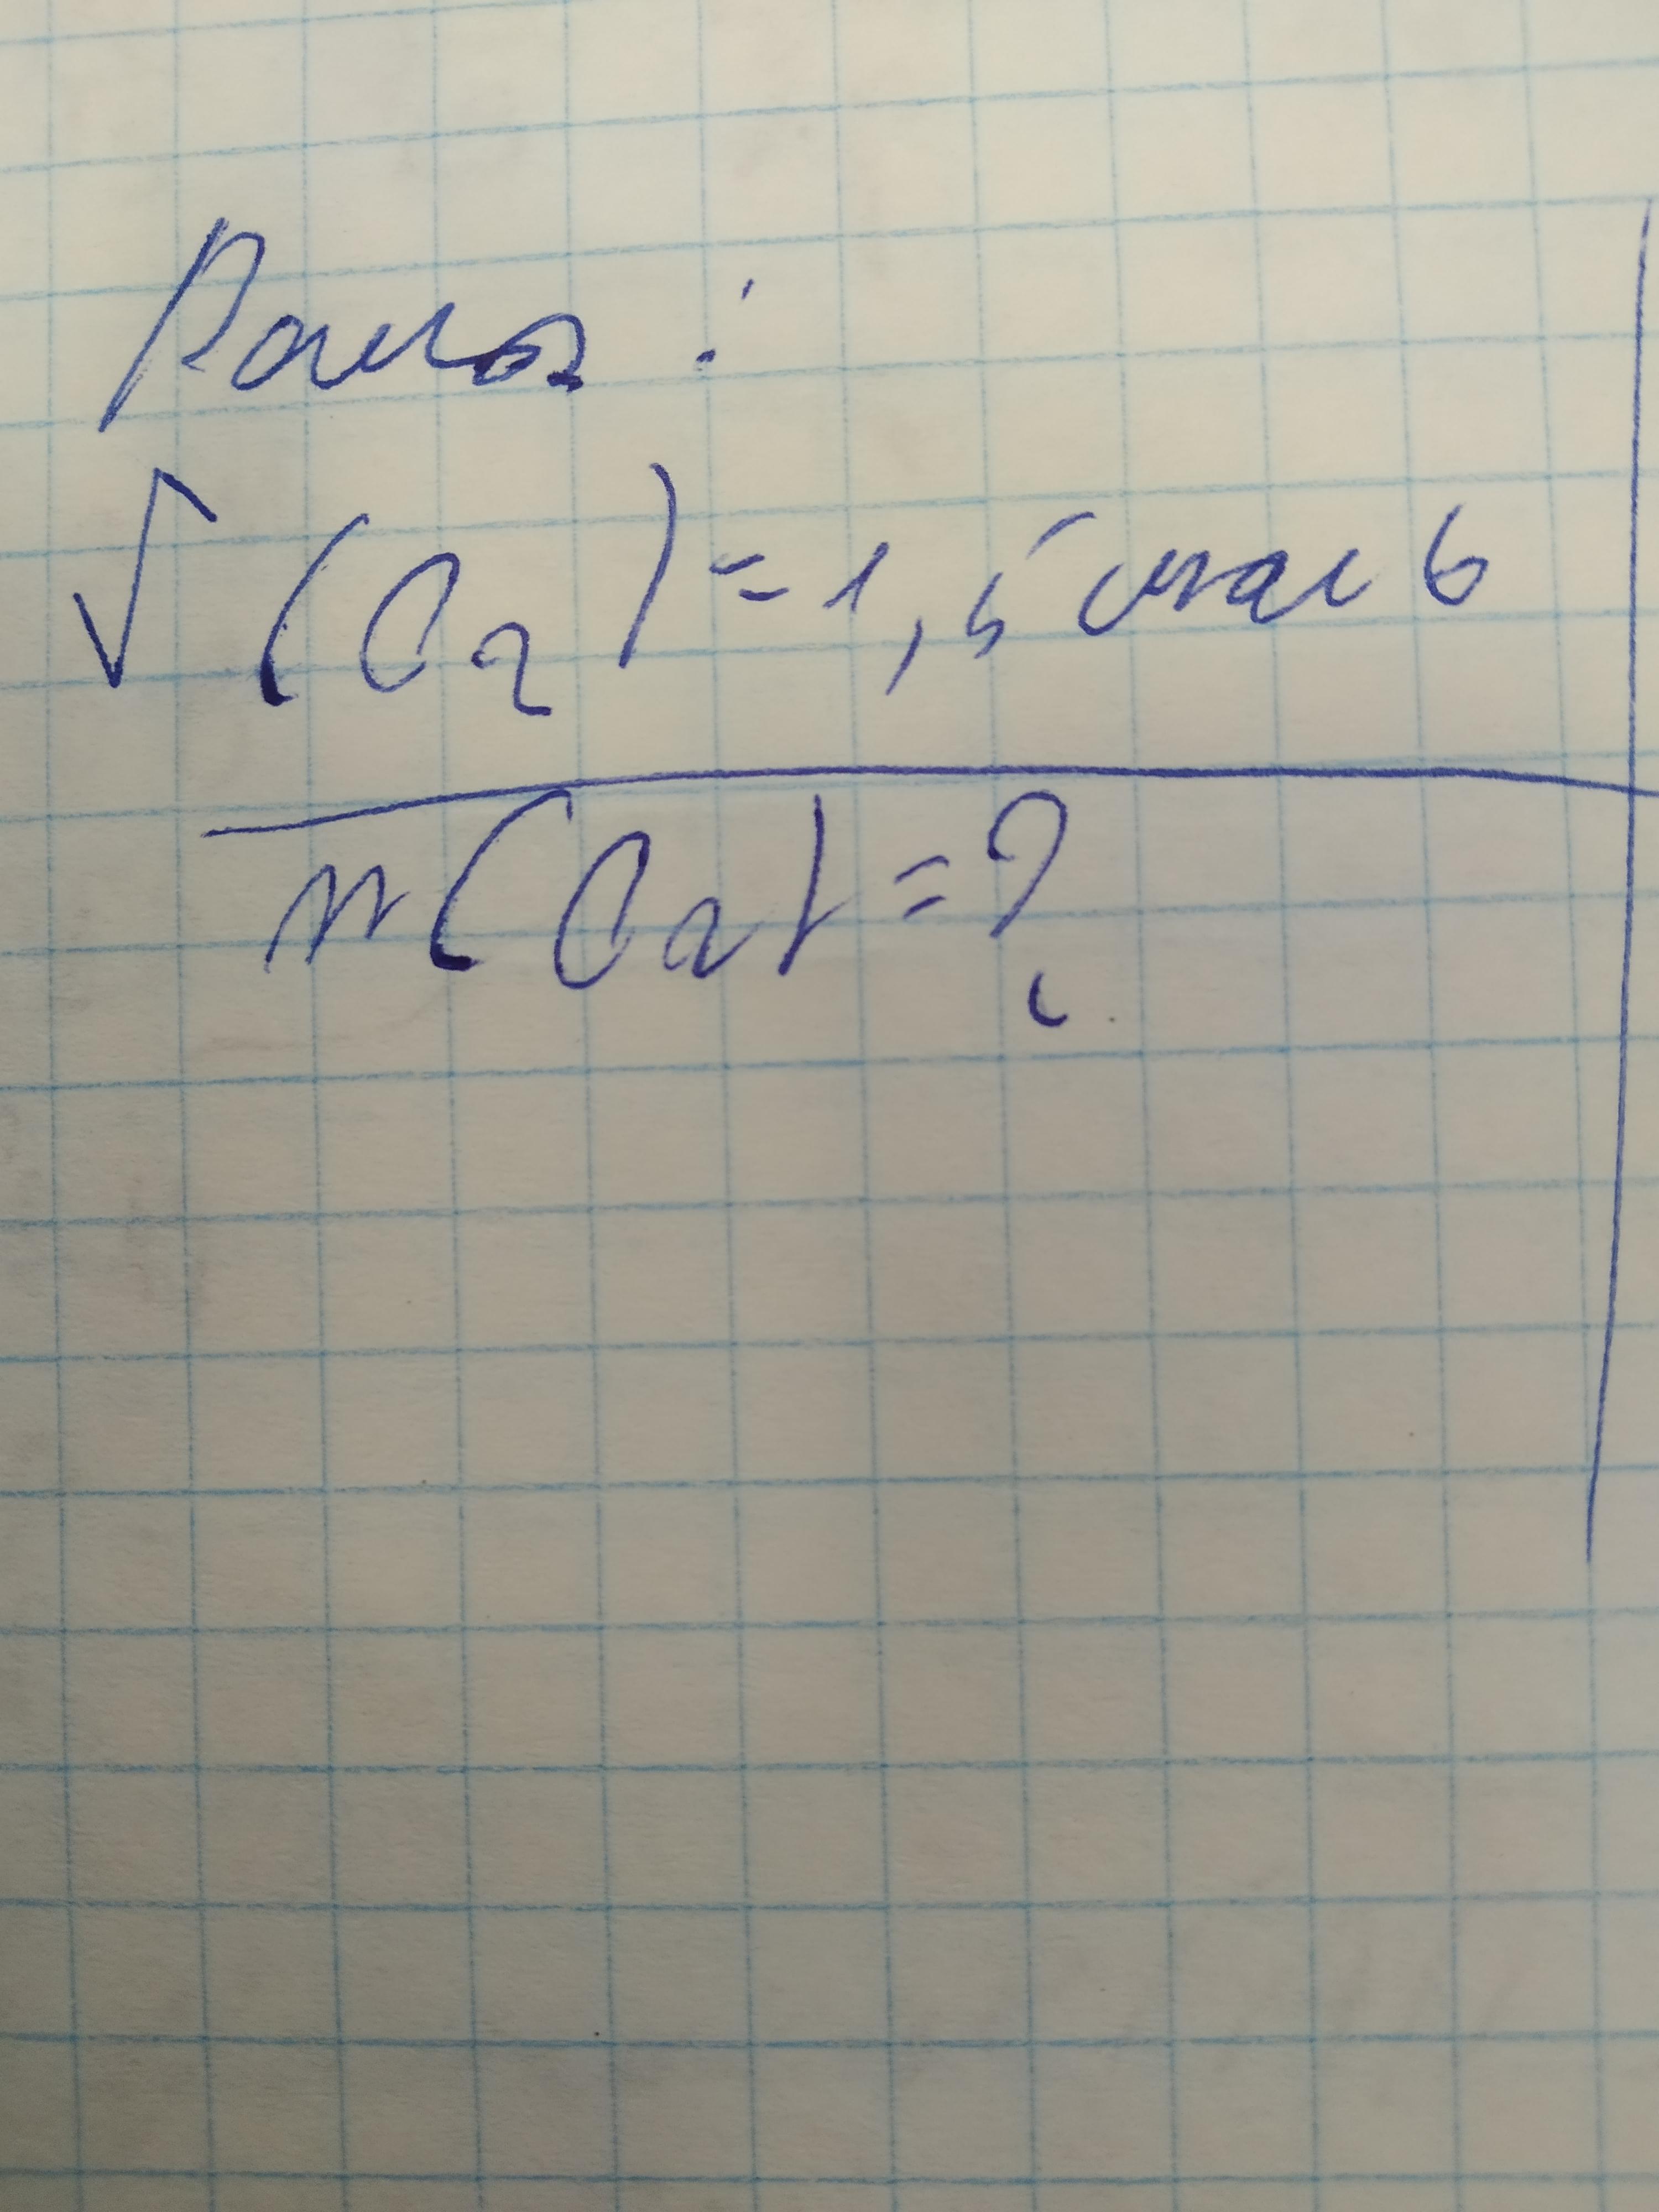 Дано:
√(O₂)=1,5 моль
m(O₂)=?